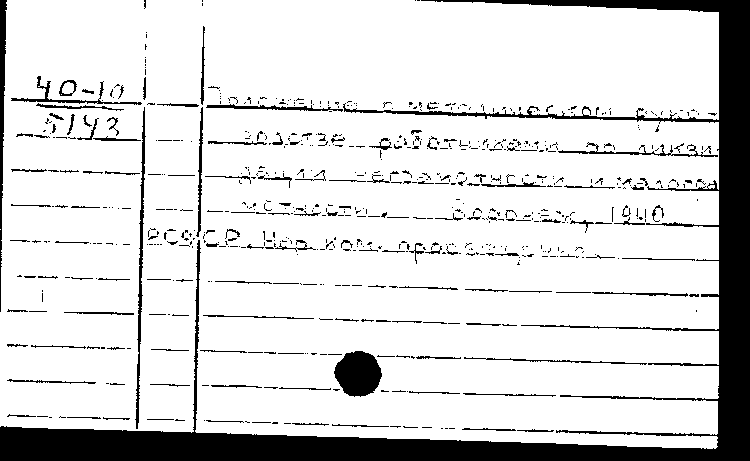 40-10
5143
Положение о методическом руко-
водстве работниками по ликви-
дации неграмотности и малогра-
мотности. Воронеж, 1940.
РСФСР. Нар. ком. просвещения.